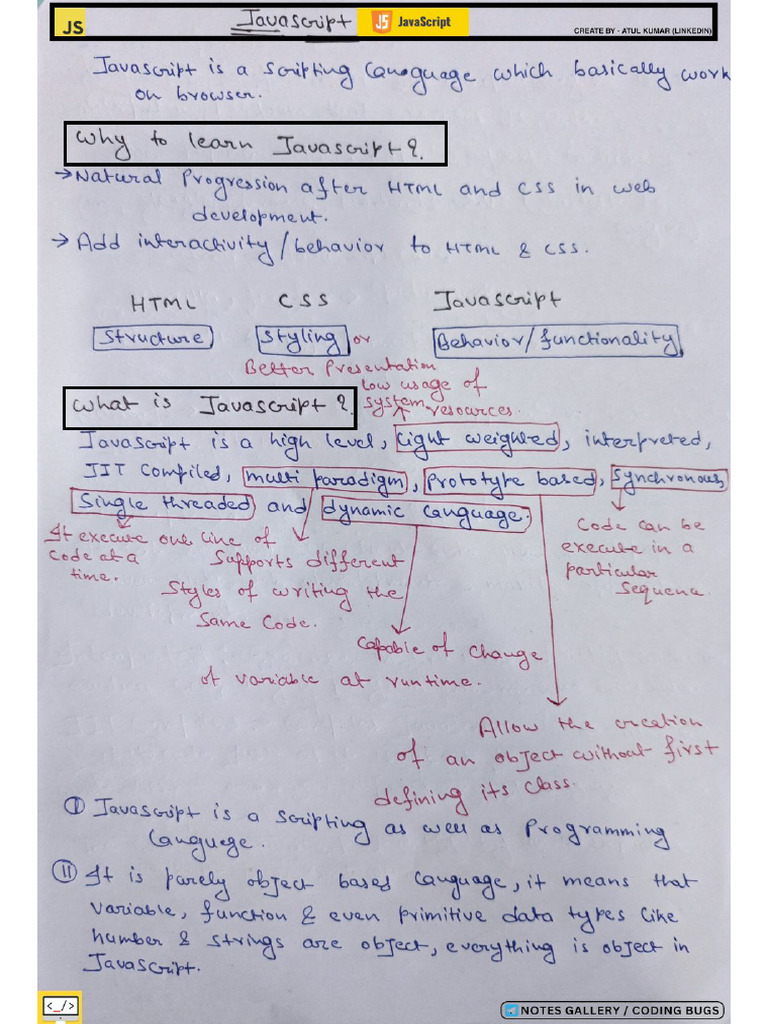 JS
Javascript
JS JavaScript
CREATE BY - ATUL KUMAR (LINKEDIN)
Javascript is a scripting language which basically work
on browser.
Why to learn Javascript?
→ Natural Progression after HTML and CSS in web
development.
→ Add interactivity/behavior to HTML & CSS.
HTML CSS Javascript
Structure Styling or Behavior/functionality
Better Presentation
low usage of
system resources.
What is Javascript?
Javascript is a high level, light weighted, interpreted,
JIT Compiled, multi paradigm, Prototype based, Synchronous,
Single threaded and dynamic language.
It execute one line of
Code at a
time.
Supports different
Styles of writing the
Same Code.
Code can be
execute in a
particular
Sequena.
Capable of Change
of variable at runtime.
Allow the creation
of an object without first
defining its class.
I Javascript is a scripting as well as Programming
languege.
II It is purely object based language, it means that
variable, function & even primitive data types like
number & strings are object, everything is object in
Javascript.
<_/>
NOTES GALLERY / CODING BUGS